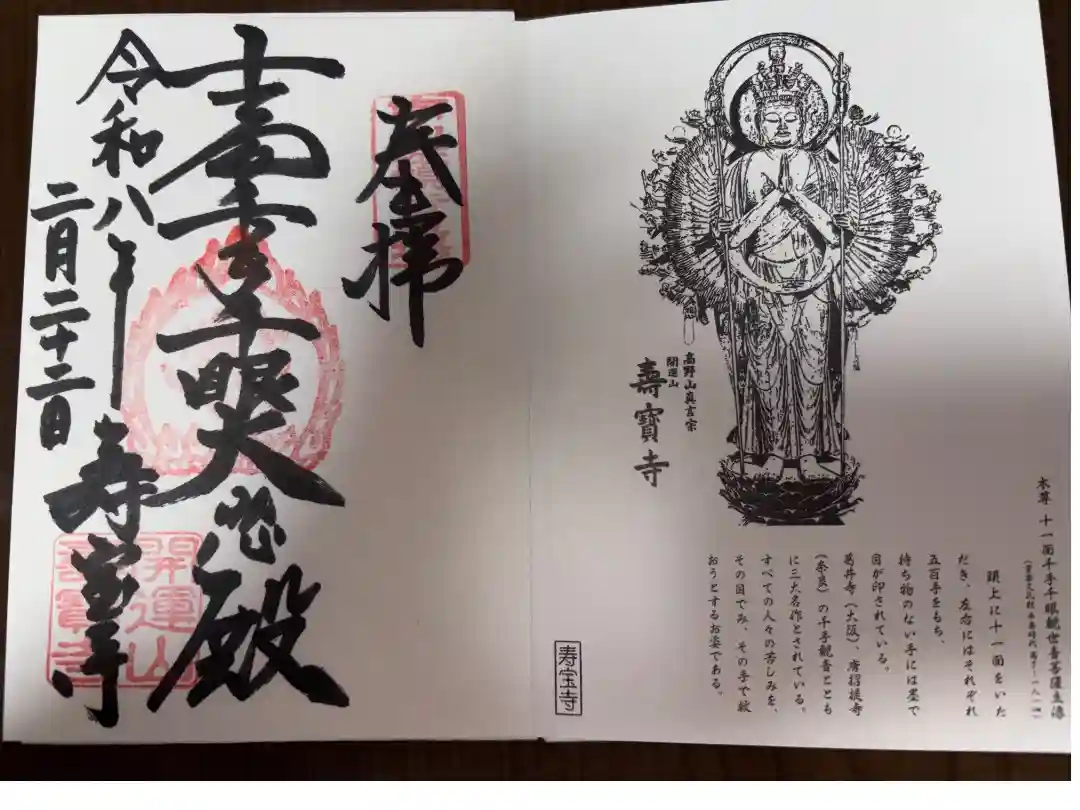 本尊 十一面千手千眼観世音菩薩立像
(重要文化財
頭上に十一面をいた
だき、左右にはそれぞれ
五百手をもち、
持ち物のない手には墨で
目が印されている。
葛井寺(大阪)、唐招提寺
(奈良)の千手観音ととも
に三大名作とされている。
すべての人々の苦しみを、
その目でみ、その手で救
おうとするお姿である。
高野山真言宗
開運山
壽寳寺
寿宝寺
奉拝
十一面千手千眼大悲殿
令和八年
二月二十二日
寿宝寺
開運山
壽寳寺